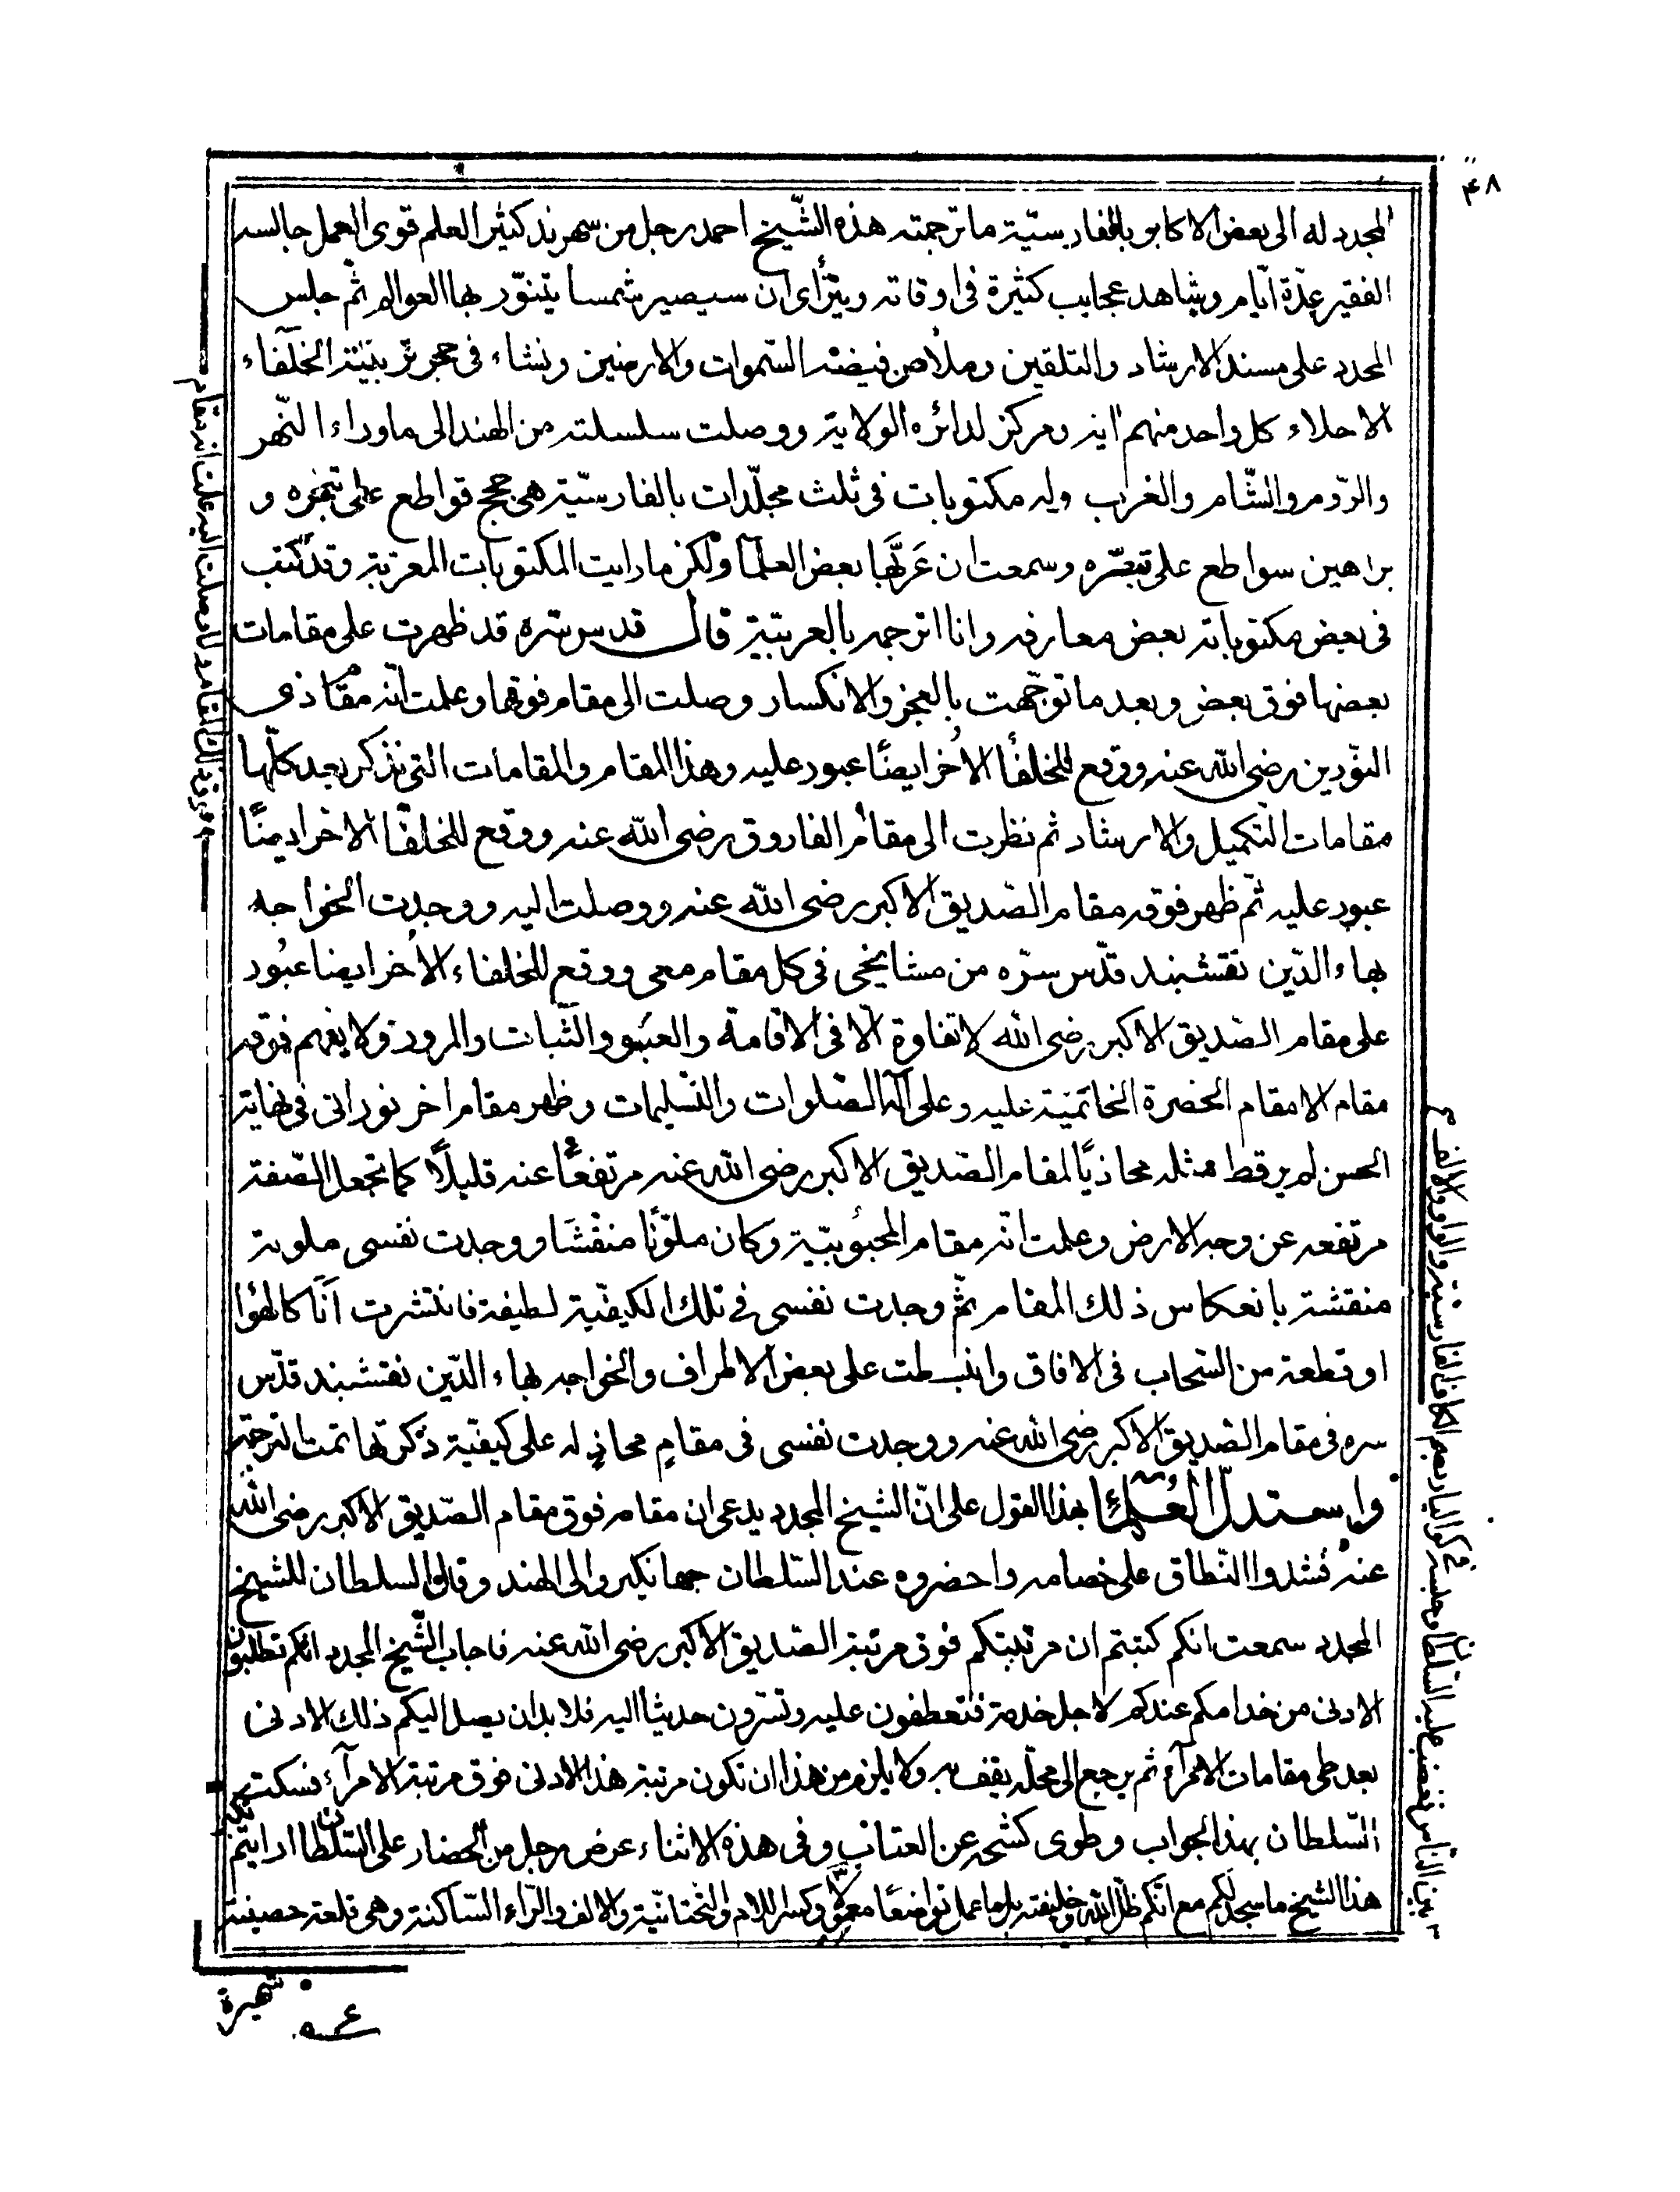 ۴۸
المجدد له الى بعض الاكابر بالفارسيّة ما ترجمته هذه الشّيخ احمد رجل من سهرند كثير العلم قوى العمل جالسه
الفقير عدّة ايّام ويشاهد عجايب كثيرة فى اوقاته ويترأى ان سيصير شمسا يتنوّر بها العوالم ثمّ جلس
المجدد على مسند الارشاد والتلقين وملأ من فيضه السّموات والارضين ونشاء فى حجر تربيته الخلفاء
الاجلاء كل واحد منهم اية ومركز لدائرة الولاية ووصلت سلسلته من الهند الى ماوراء النّهر
والرّوم والشّام والغرب وله مكتوبات فى ثلث مجلّدات بالفارسيّة هى حجج قواطع على تبحّره و
براهين سواطع على تبصّره وسمعت ان عَرَّبَها بعض العلمآ ولكن ما رايت المكتوبات المعربة وقد كتب
فى بعض مكتوباته بعض معارفه وانا اترجمه بالعربيّة قال قدس سره قد ظهرت على مقامات
بعضها فوق بعض وبعد ما توجّهت بالعجز والانكسار وصلت الى مقام فوقها وعلمت انّه مقام ذى
النّورين رضى الله عنه ووقع للخلفأ الأخر ايضًا عبور عليه وهذا المقام والمقامات التى نذكر بعد كلّها
مقامات التكميل والارشاد ثم نظرت الى مقام الفاروق رضى الله عنه ووقع للخلفآ الاخر ايضًا
عبور عليه ثمّ ظهر فوقه مقام الصّديق الاكبر رضى الله عنه ووصلت اليه ووجدت الخواجه
بهاء الدّين نقشبند قدّس سرّه من مشايخى فى كل مقام معى ووقع للخلفاء الأخر ايضا عبُور
على مقام الصّديق الاكبر رضى الله لا تفاوة الّا فى الاقامة والعبُور والثّبات والمرور ولا يفهم فوقه
مقام الا مقام الحضرة الخاتَميّة عليه وعلى آله الصّلوات والتّسليمات وظهر مقام اخر نورانى فى نهاية
الحسن لم ير قط مثله محاذيًا لمقام الصّديق الاكبر رضى الله عنه مرتفعًا عنه قليلًا كما تجعل الصّفة
مرتفعه عن وجه الارض وعلمت انّه مقام المحبُوبيّة وكان ملوّنًا منقّشًا ووجدت نفسى ملونة
منقشة بانعكاس ذلك المقام ثمّ وجدت نفسى فى تلك الكيفيّة لطيفة فانتشرت انًا كالهوا
او قطعة من السّحاب فى الافاق وانبسطت على بعض الاطراف والخواجه بهاء الدّين نقشبند قدّس
سره فى مقام الصّديق الاكبر رضى الله عنه ووجدت نفسى فى مقامٍ محاذٍ له على كيفيّة ذكرتها تمت الترجمة
واستدلّ العُلمآ بهذا القول على انّ الشيخ المجدد يدعى ان مقامه فوق مقام الصّديق الاكبر رضى الله
عنه فشدوا النّطاق على خصامه واحضروه عند السّلطان جهانكير والى الهند وقال السلطان للشيخ
المجدد سمعت انكم كتبتم ان مرتبتكم فوق مرتبة الصّديق الاكبر رضى الله عنه فاجاب الشّيخ المجدد انكم تطلبون
الادنى من خدامكم عندكم لاجل خدمة فتعطفون عليه وتسّرون حديثا اليه فلا بد ان يصل اليكم ذلك الادنى
بعد طى مقامات الامرآء ثم يرجع الى محلّه يقف به ولا يلزم من هذا ان تكون مرتبة هذا الادنى فوق مرتبة الامرآء فسكت
السّلطان بهذا الجواب وطوى كشحه عن العتاب وفى هذه الاثناء عرض رجل من الحضار على السّلطان ارايتم
هذا الشيخ ما سجد لكم مع انّكم ظلّ الله وخليفته بل ما عمل تواضعًا وكسر اللام والتحتانيّة والالف والرّاء السّاكنة وهى قلعة حصينة
شهيرة